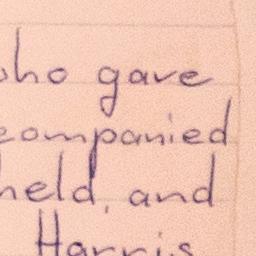 who gave
companied
held, and
Harris